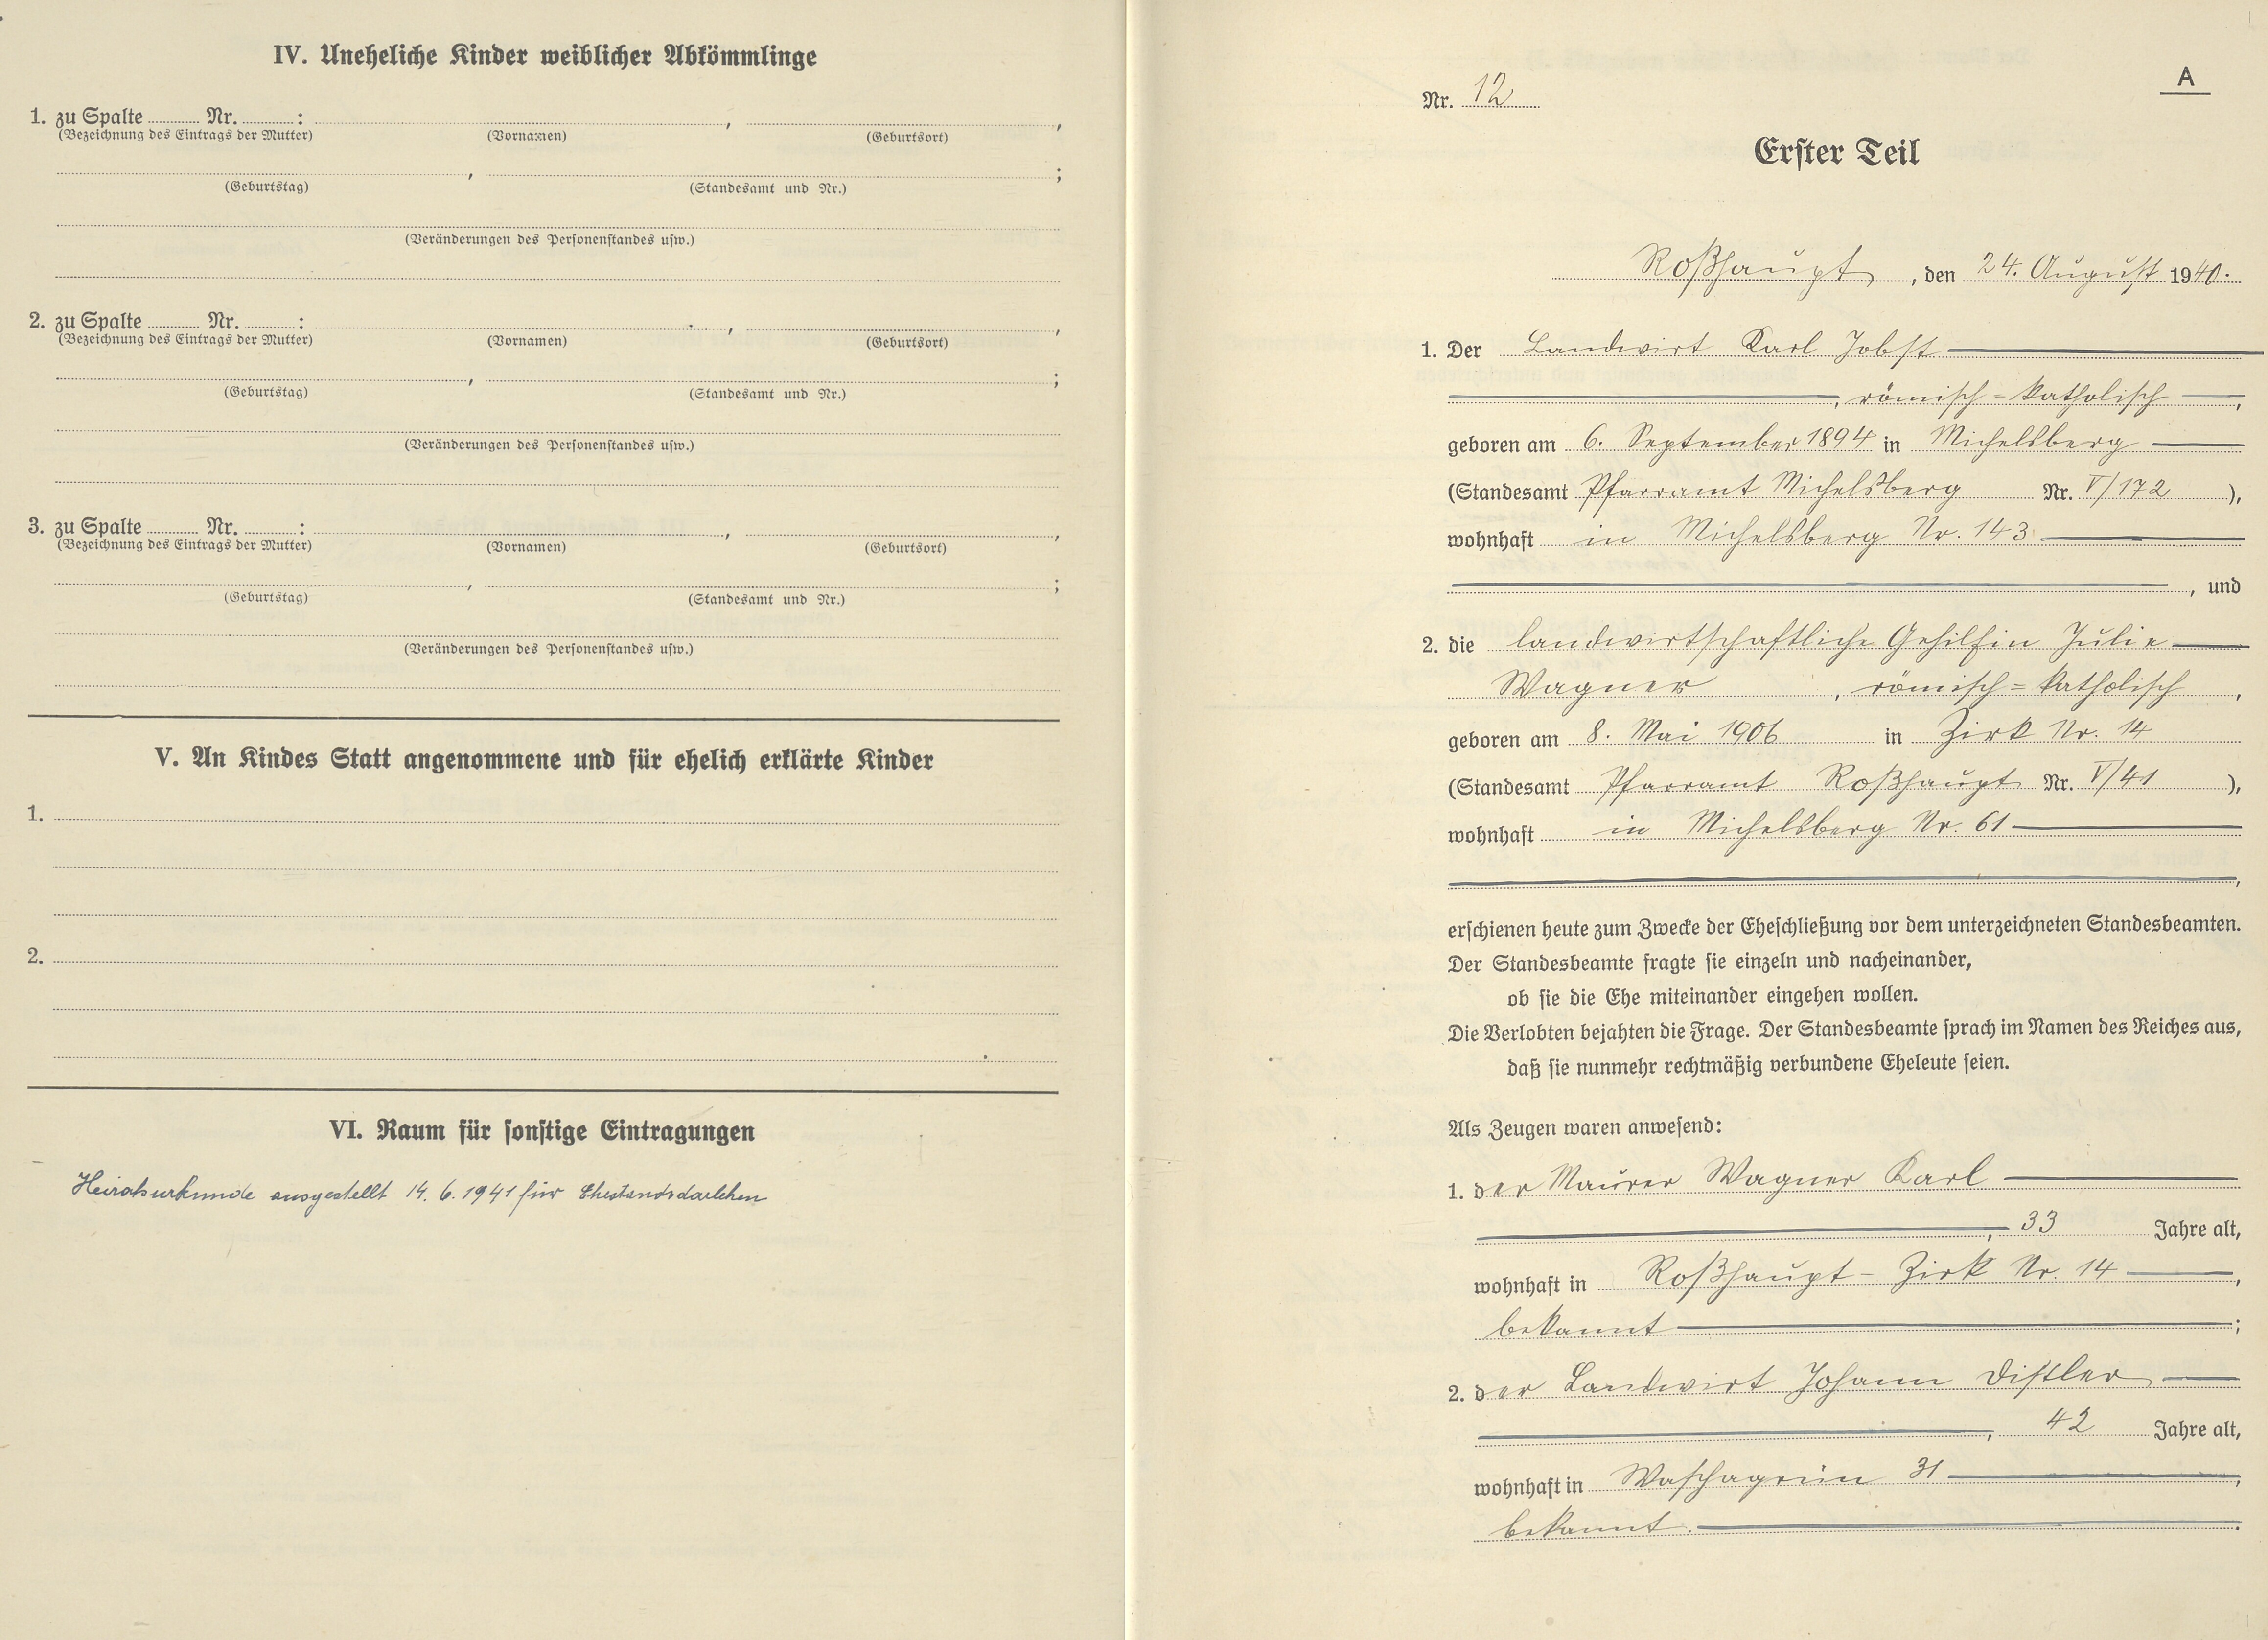 IV. Uneheliche Kinder weiblicher Abkömmlinge
1. zu Spalte ........ Nr. ........ :
(Bezeichnung des Eintrags der Mutter) (Vornamen) (Geburtsort)
(Geburtstag) (Standesamt und Nr.)
(Veränderungen des Personenstandes usw.)
2. zu Spalte ........ Nr. ........ :
(Bezeichnung des Eintrags der Mutter) (Vornamen) (Geburtsort)
(Geburtstag) (Standesamt und Nr.)
(Veränderungen des Personenstandes usw.)
3. zu Spalte ........ Nr. ........ :
(Bezeichnung des Eintrags der Mutter) (Vornamen) (Geburtsort)
(Geburtstag) (Standesamt und Nr.)
(Veränderungen des Personenstandes usw.)
V. An Kindes Statt angenommene und für ehelich erklärte Kinder
1.
2.
VI. Raum für sonstige Eintragungen
Heiratsurkunde ausgestellt 14. 6. 1941 für Ehestandsdarlehen
A
Nr. 12
Erster Teil
Roßhaupt, den 24. August 1940.
1. Der Landwirt Karl Jobst
, römisch=katholisch,
geboren am 6. September 1894 in Michelsberg
(Standesamt Pfarramt Michelsberg Nr. V/172 ),
wohnhaft in Michelsberg Nr. 143
, und
2. die landwirtschaftliche Gehilfin Julie
Wagner, römisch=katholisch,
geboren am 8. Mai 1906 in Zirk Nr. 14
(Standesamt Pfarramt Roßhaupt Nr. V/41 ),
wohnhaft in Michelsberg Nr. 61
,
erschienen heute zum Zwecke der Eheschließung vor dem unterzeichneten Standesbeamten.
Der Standesbeamte fragte sie einzeln und nacheinander,
ob sie die Ehe miteinander eingehen wollen.
Die Verlobten bejahten die Frage. Der Standesbeamte sprach im Namen des Reiches aus,
daß sie nunmehr rechtmäßig verbundene Eheleute seien.
Als Zeugen waren anwesend:
1. der Maurer Wagner Karl
, 33 Jahre alt,
wohnhaft in Roßhaupt - Zirk Nr. 14,
bekannt;
2. der Landwirt Johann Distler
, 42 Jahre alt,
wohnhaft in Waschagrün 31,
bekannt.